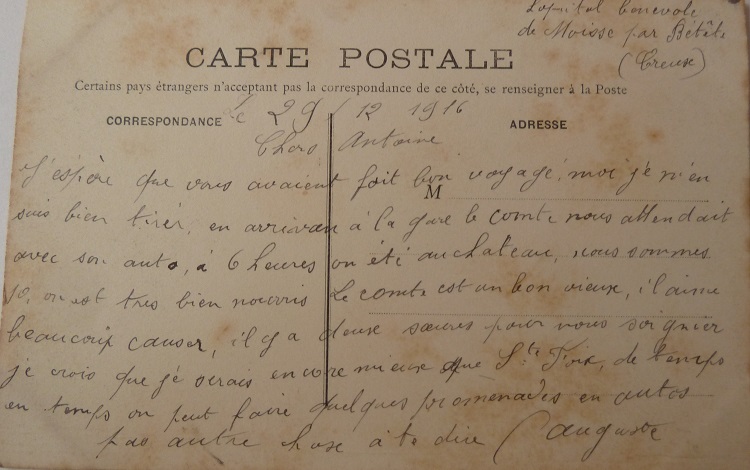 hopital benevole
de Moisse par Bétête
(Creuse)
CARTE POSTALE
Certains pays étrangers n'acceptant pas la correspondance de ce côté, se renseigner à la Poste
Le 29/12 1916
CORRESPONDANCE
ADRESSE
Chers Antoine
J'espère que vous avaient fait bon voyage, moi je m'en
M
suis bien tirér, en arrivan à la gare le comte nous attendait
avec son auto, à 6 heures on été au chateau, nous sommes
10, on est tres bien nourris Le comte est un bon vieux, il aime
beaucoup causer, il y a deux sœurs pour nous soignier
je crois que je serais encore mieux que Ste Foix, de temps
en temps on peut faire quelques promenades en autos
pas autre chose à te dire Auguste